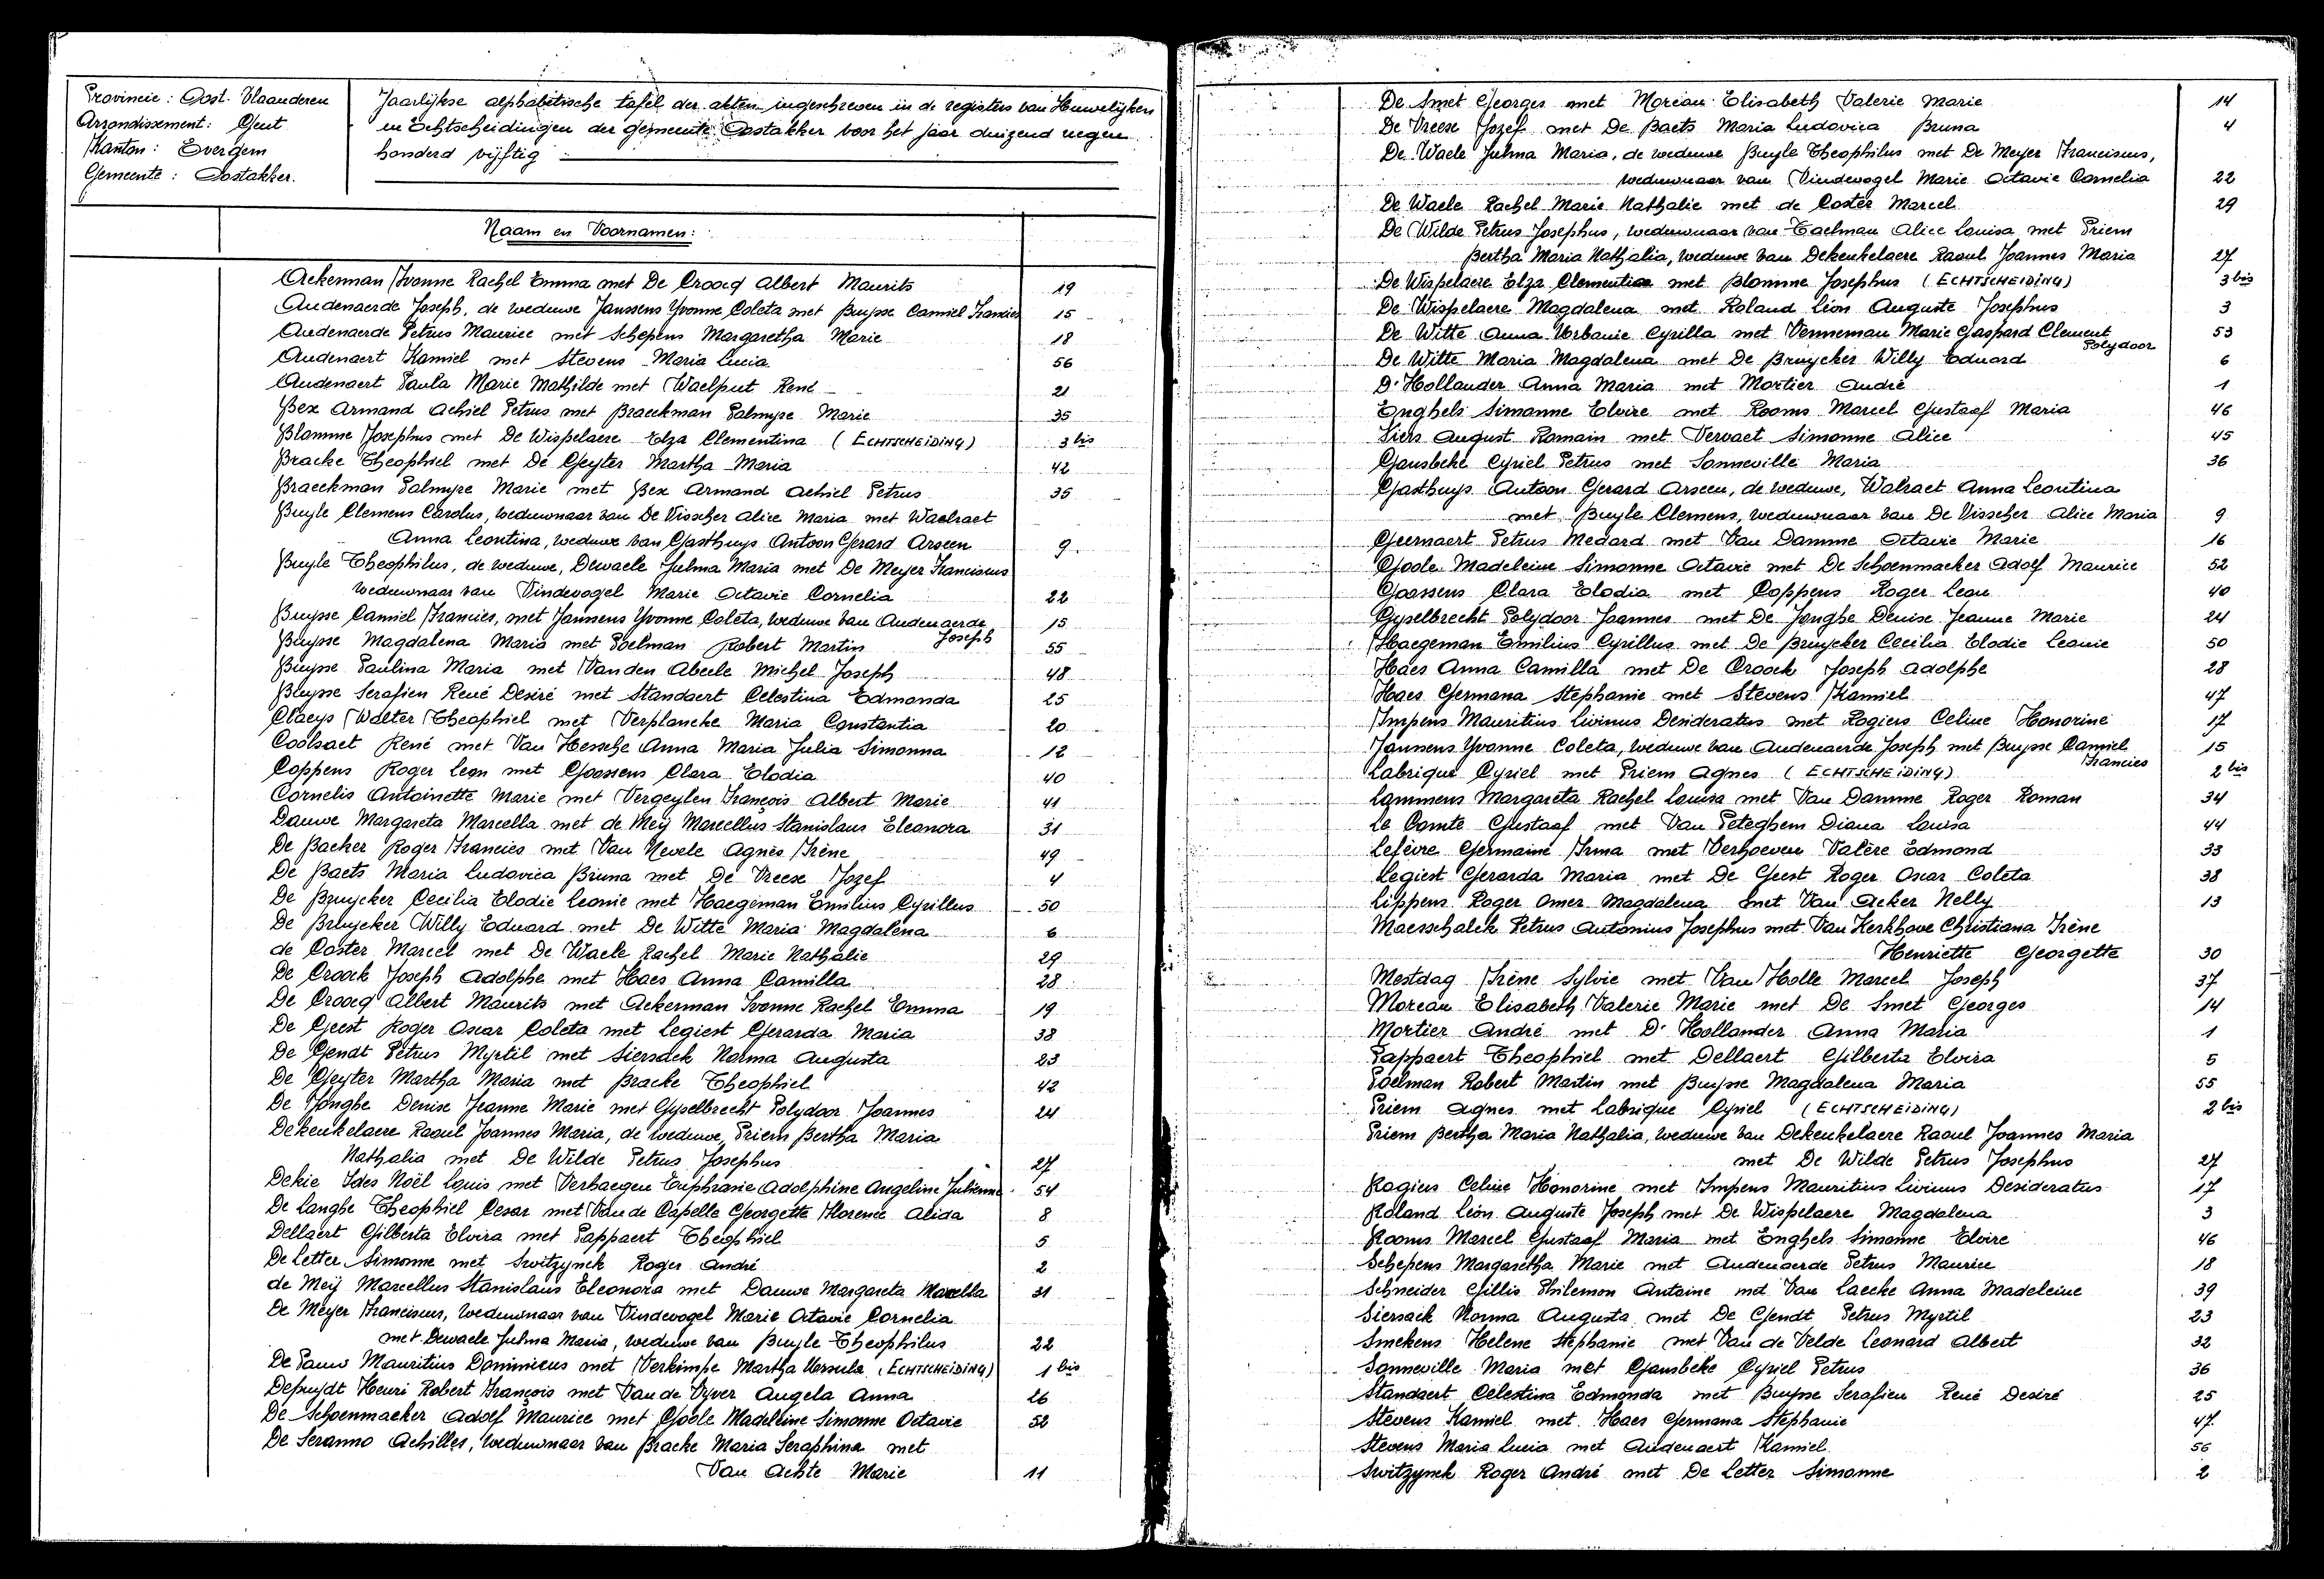 Provincie : Oost-Vlaanderen
Arrondissement : Gent
Kanton : Evergem
Gemeente : Oostakker.
Jaarlijkse alphabetische tafel der akten ingeschreven in de registers van Huwelijken
en Echtscheidingen der gemeente Oostakker voor het jaar duizend negen
honderd vijftig
Naam en Voornamen :
Ackerman Ivonne Rachel Emma met De Croocq Albert Maurits 19
Audenaerde Joseph, de weduwe Janssens Yvonne Coleta met Buysse Camiel Francies 15
Audenaerde Petrus Maurice met Schepens Margaretha Marie 18
Audenaert Kamiel met Stevens Maria Lucia 56
Audenaert Paula Marie Mathilde met Waelput René 21
Bex Armand Achiel Petrus met Braeckman Palmyre Marie 35
Blomme Josephus met De Wispelaere Elza Clementina (ECHTSCHEIDING) 3 bis
Bracke Theophiel met De Geyter Martha Maria 42
Braeckman Palmyre Marie met Bex Armand Achiel Petrus 35
Buyle Clemens Carolus, weduwnaar van De Visscher Alice Maria met Waelraet
Anna Leontina, weduwe van Gasthuys Antoon Gerard Arseen 9.
Buyle Theophilus, de weduwe, Dewaele Julma Maria met De Meyer Franciscus
weduwnaar van Vindevogel Marie Octavie Cornelia 22
Buysse Camiel Francies, met Janssens Yvonne Coleta, weduwe van Audenaerde 15
Joseph
Buysse Magdalena Maria met Poelman Robert Martin 55
Buysse Paulina Maria met Vanden Abeele Michel Joseph 48
Buysse Serafien René Desiré met Standaert Celestina Edmonda 25
Claeys Walter Theophiel met Verplancke Maria Constantia 20
Coolsaet René met Van Hessche Anna Maria Julia Simonna 12
Coppens Roger Leon met Goossens Clara Elodia 40
Cornelis Antoinette Marie met Vergeylen François Albert Marie 41
Dauwe Margareta Marcella met de Meij Marcellus Stanislaus Eleonora 31
De Backer Roger Francies met Van Nevele Agnès Irène 49
De Baets Maria Ludovica Bruna met De Vreese Jozef 4
De Bruycker Cecilia Elodie Leonie met Haegeman Emilius Cyrillus 50
De Bruycker Willy Eduard met De Witte Maria Magdalena 6
de Coster Marcel met De Waele Rachel Marie Nathalie 29
De Croock Joseph Adolphe met Haes Anna Camilla 28
De Croocq Albert Maurits met Ackerman Ivonne Rachel Emma 19
De Geest Roger Oscar Coleta met Legiest Gerarda Maria 38
De Gendt Petrus Myrtil met Siersack Norma Augusta 23
De Geyter Martha Maria met Bracke Theophiel 42
De Jonghe Denise Jeanne Marie met Gyselbrecht Polydoor Joannes 24
Dekeukelaere Raoul Joannes Maria, de weduwe, Priem Bertha Maria
Nathalia met De Wilde Petrus Josephus 27
Dekie Ides Noël Louis met Verhaegen Euphranie Adolphine Angeline Julienne 54
De Langhe Theophiel Cesar met Van de Capelle Georgette Florence Alida 8
Dellaert Gilberta Elvira met Pappaert Theophiel 5
De Letter Simonne met Switzynck Roger André 2
de Meij Marcellus Stanislaus Eleonora met Dauwe Margareta Marcella 31
De Meyer Franciscus, weduwnaar van Vindevogel Marie Octavie Cornelia
met Dewaele Julma Maria, weduwe van Buyle Theophilus 22
De Pauw Mauritius Dominicus met Verkimpe Martha Ursula (ECHTSCHEIDING) 1 bis
Depuydt Henri Robert François met Van de Vyver Angela Anna 26
De Schoenmaeker Adolf Maurice met Goole Madeleine Simonne Octavie 52
De Seranno Achilles, weduwnaar van Bracke Maria Seraphina met
Van Achte Marie 11
De Smet Georges met Moreau Elisabeth Valerie Marie 14
De Vreese Jozef met De Baets Maria Ludovica Bruna 4
De Waele Julma Maria, de weduwe Buyle Theophilus met De Meyer Franciscus,
weduwnaar van Vindevogel Marie Octavie Cornelia 22
De Waele Rachel Marie Nathalie met de Coster Marcel 29
De Wilde Petrus Josephus, weduwnaar van Taelman Alice Louisa met Priem
Bertha Maria Nathalia, weduwe van Dekeukelaere Raoul Joannes Maria 27
De Wispelaere Elza Clementina met Blomme Josephus (ECHTSCHEIDING) 3 bis
De Wispelaere Magdalena met Roland Léon Auguste Josephus 3
De Witte Anna Urbanie Cyrilla met Venneman Marie Gaspard Clement 53
Polydoor
De Witte Maria Magdalena met De Bruycker Willy Eduard 6
D'Hollander Anna Maria met Mortier André 1
Enghels Simonne Elvire met Rooms Marcel Gustaaf Maria 46
Fiers August Romain met Vervaet Simonne Alice 45
Gansbeke Cyriel Petrus met Sonneville Maria 36
Gasthuys Antoon Gerard Arseen, de weduwe, Walraet Anna Leontina
met Buyle Clemens, weduwnaar van De Visscher Alice Maria 9
Geernaert Petrus Medard met Van Damme Octavie Marie 16
Goole Madeleine Simonne Octavie met De Schoenmaeker Adolf Maurice 52
Goossens Clara Elodia met Coppens Roger Leon 40
Gyselbrecht Polydoor Joannes met De Jonghe Denise Jeanne Marie 24
Haegeman Emilius Cyrillus met De Bruycker Cecilia Elodie Leonie 50
Haes Anna Camilla met De Croock Joseph Adolphe 28
Haes Germana Stephanie met Stevens Kamiel 47
Impens Mauritius Livinus Desideratus met Rogiers Celine Honorine 17
Janssens Yvonne Coleta, weduwe van Audenaerde Joseph met Buysse Camiel 15
Francies
Labrique Cyriel met Priem Agnes (ECHTSCHEIDING) 2 bis
Lammens Margareta Rachel Louisa met Van Damme Roger Roman 34
Le Comte Gustaaf met Van Peteghem Diana Louisa 44
Lefèvre Germaine Irma met Verhoeven Valère Edmond 33
Legiest Gerarda Maria met De Geest Roger Oscar Coleta 38
Lippens Roger Omer Magdalena met Van Acker Nelly 13
Maesschalck Petrus Antonius Josephus met Van Kerkhove Christiana Irène
Henriette Georgette 30
Mestdag Irène Sylvie met Van Holle Marcel Joseph 37
Moreau Elisabeth Valerie Marie met De Smet Georges 14
Mortier André met D'Hollander Anna Maria 1
Pappaert Theophiel met Dellaert Gilberta Elvira 5
Poelman Robert Martin met Buysse Magdalena Maria 55
Priem Agnes met Labrique Cyriel (ECHTSCHEIDING) 2 bis
Priem Bertha Maria Nathalia, weduwe van Dekeukelaere Raoul Joannes Maria
met De Wilde Petrus Josephus 27
Rogiers Celine Honorine met Impens Mauritius Livinus Desideratus 17
Roland Léon Auguste Joseph met De Wispelaere Magdalena 3
Rooms Marcel Gustaaf Maria met Enghels Simonne Elvire 46
Schepens Margaretha Marie met Audenaerde Petrus Maurice 18
Schneider Gillis Philemon Antoine met Van Laecke Anna Madeleine 39
Siersack Norma Augusta met De Gendt Petrus Myrtil 23
Smekens Helene Stephanie met Van de Velde Leonard Albert 32
Sonneville Maria met Gansbeke Cyriel Petrus 36
Standaert Celestina Edmonda met Buysse Serafien René Desiré 25
Stevens Kamiel met Haes Germana Stephanie 47
Stevens Maria Lucia met Audenaert Kamiel 56
Switzynck Roger André met De Letter Simonne 2